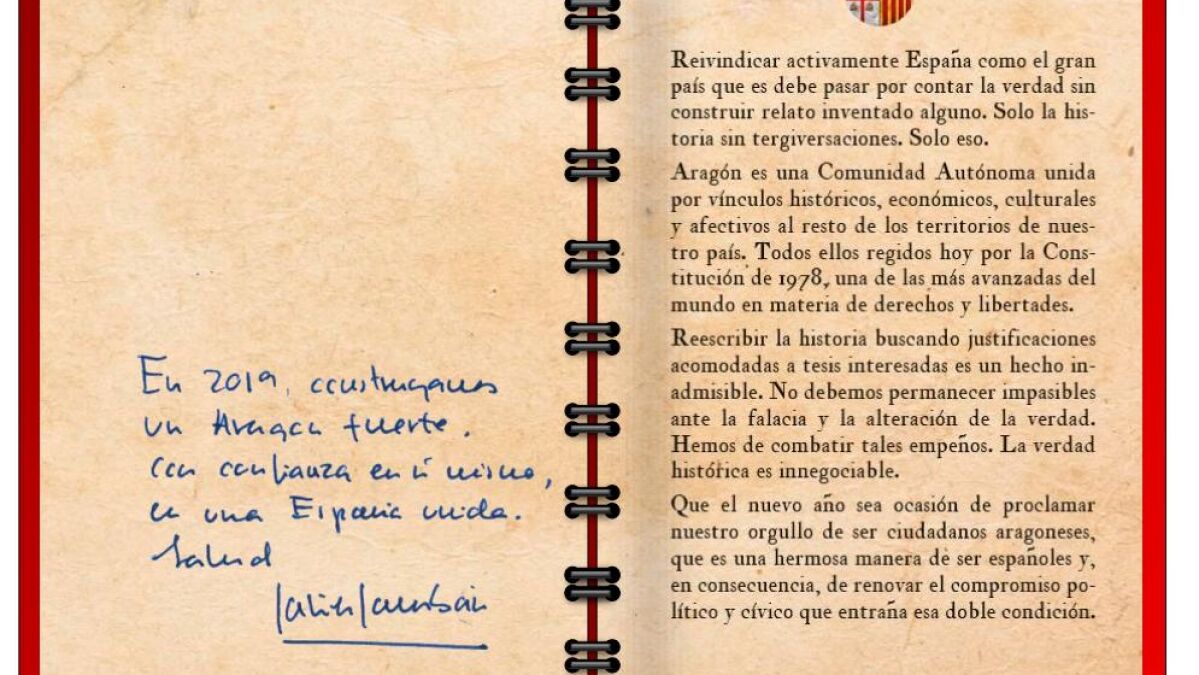 En 2019, construyamos
un Aragón fuerte,
con confianza en sí mismo,
en una España unida.
Salud
Javier Lambán
Reivindicar activamente España como el gran
país que es debe pasar por contar la verdad sin
construir relato inventado alguno. Solo la his-
toria sin tergiversaciones. Solo eso.
Aragón es una Comunidad Autónoma unida
por vínculos históricos, económicos, culturales
y afectivos al resto de los territorios de nues-
tro país. Todos ellos regidos hoy por la Cons-
titución de 1978, una de las más avanzadas del
mundo en materia de derechos y libertades.
Reescribir la historia buscando justificaciones
acomodadas a tesis interesadas es un hecho in-
admisible. No debemos permanecer impasibles
ante la falacia y la alteración de la verdad.
Hemos de combatir tales empeños. La verdad
histórica es innegociable.
Que el nuevo año sea ocasión de proclamar
nuestro orgullo de ser ciudadanos aragoneses,
que es una hermosa manera de ser españoles y,
en consecuencia, de renovar el compromiso po-
lítico y cívico que entraña esa doble condición.